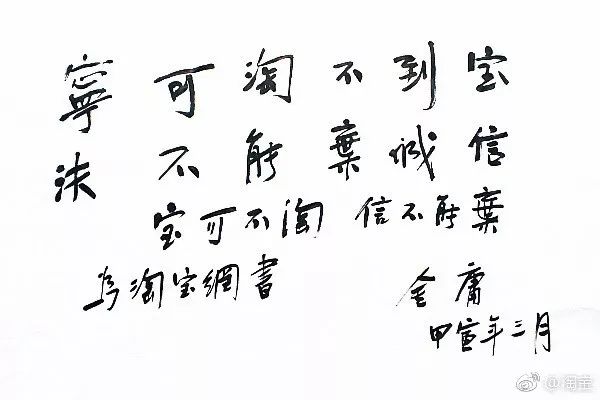 寧可淘不到宝
決不能棄诚信
宝可不淘 信不能棄
为淘宝網書 金庸
甲年三月
@淘宝